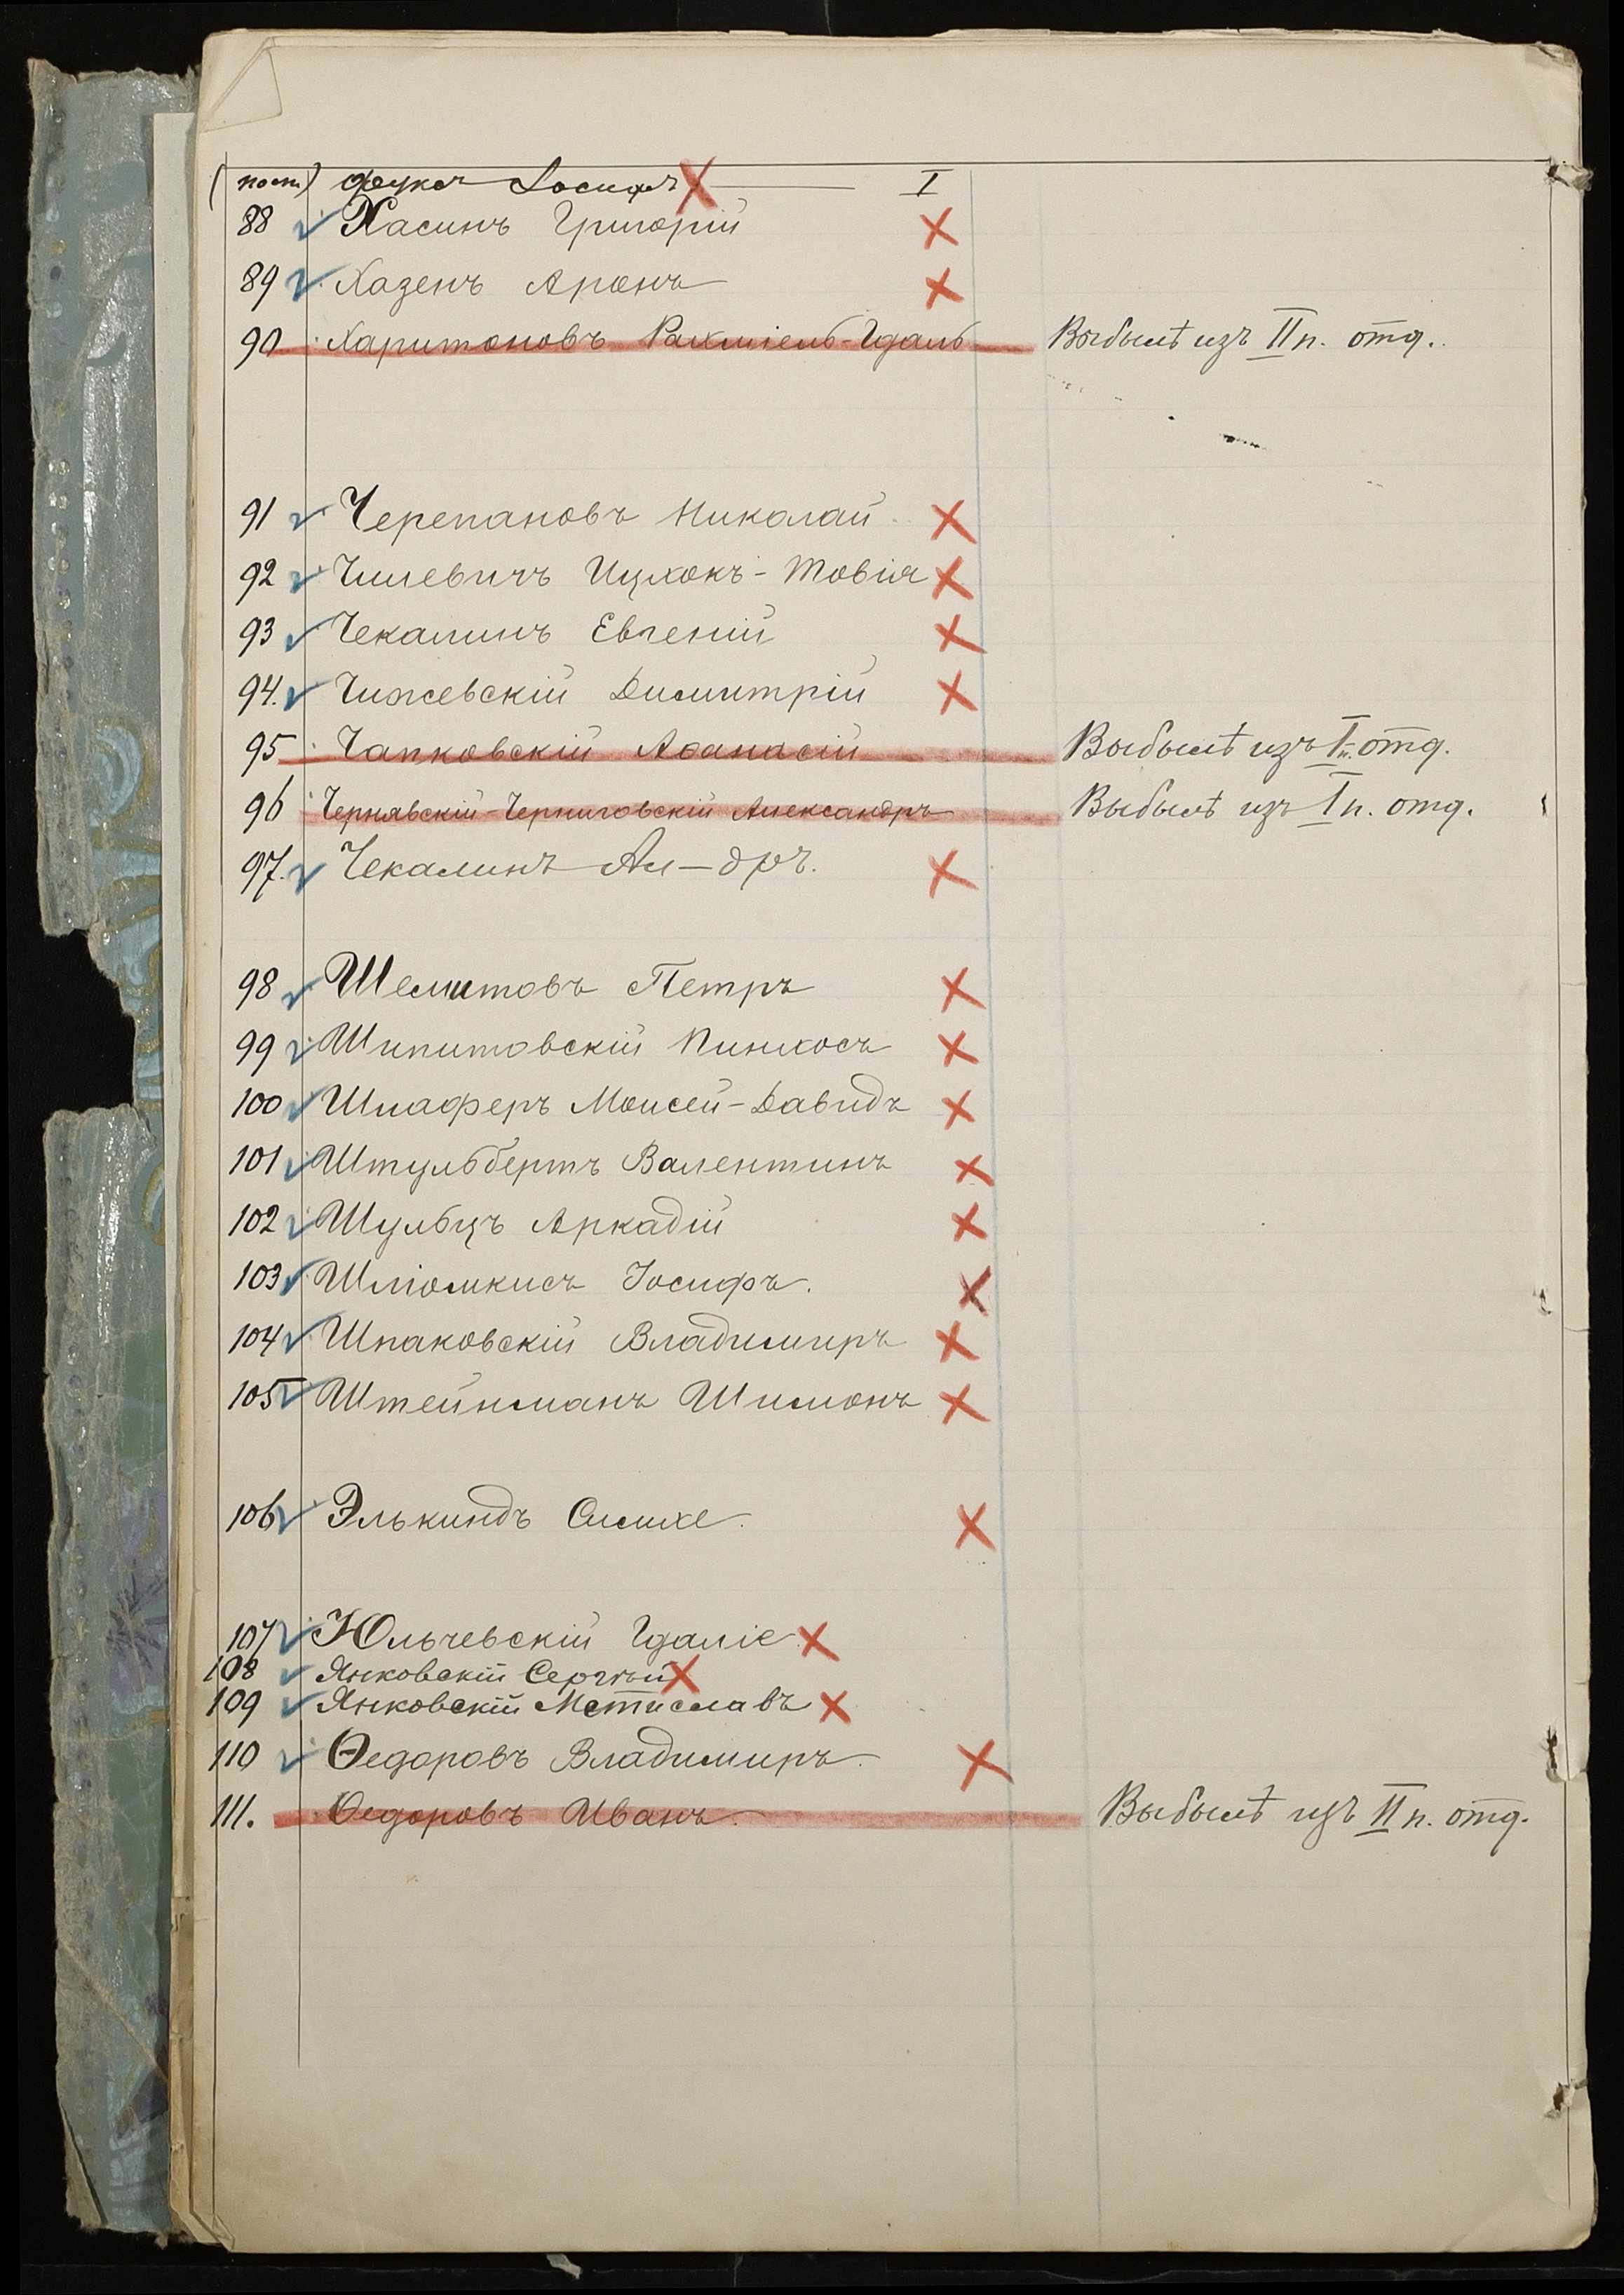 (пост) Фуксъ Іосифъ I
88 Хасинъ Григорій
89 Хазенъ Аронъ
90 Харитоновъ Рахміель-Гдаль Выбылъ изъ II п. отд.
91 Черепановъ Николай
92 Чилевичъ Ицхокъ-Товія
93 Чекалинъ Евгеній
94. Чижевскій Димитрій
95 Чапковскій Аѳанасій Выбылъ изъ I п. отд.
96 Чернявскій-Черниговскій Александръ Выбылъ изъ I п. отд.
97. Чекалинъ Ал-дръ.
98 Шеметовъ Петръ
99 Шипитовскій Пинхосъ
100 Шлаферъ Моисей-Давидъ
101 Штульбергъ Валентинъ
102 Шульцъ Аркадій
103 Шліомкисъ Іосифъ.
104 Шпаковскій Владимиръ
105 Штейнманъ Шимонъ
106 Элькиндъ Симхе
107 Юльчевскій Гдаліе
108 Янковскій Сергѣй
109 Янковскій Мстиславъ
110 Ѳедоровъ Владимиръ.
111. Ѳедоровъ Иванъ. Выбылъ изъ II п. отд.